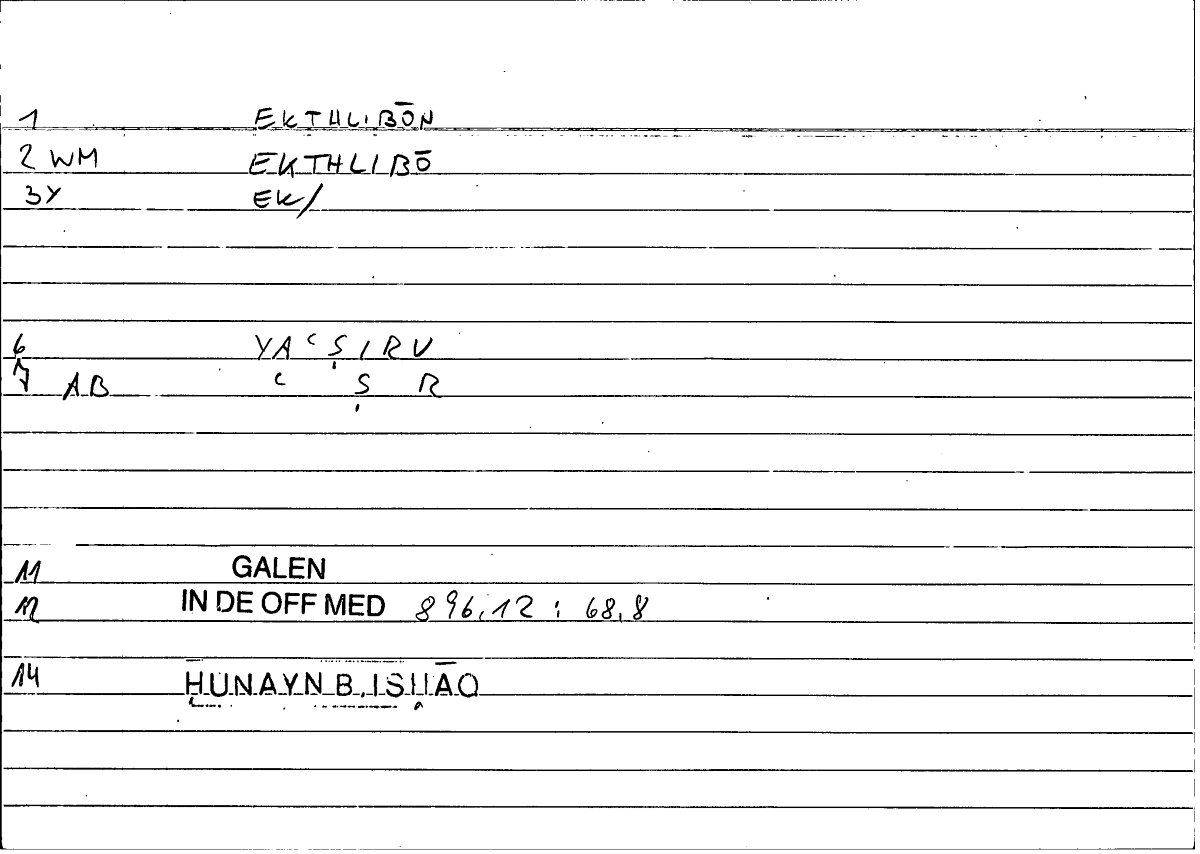 1 EKTHLIBŌN
2 WM EKTHLIBŌ
3Y EK/
6 YAʿṢIRU
7 AB ʿ Ṣ R
11 GALEN
12 IN DE OFF MED 896,12 : 68,8
14 ḤUNAYN B. ISḤĀQ